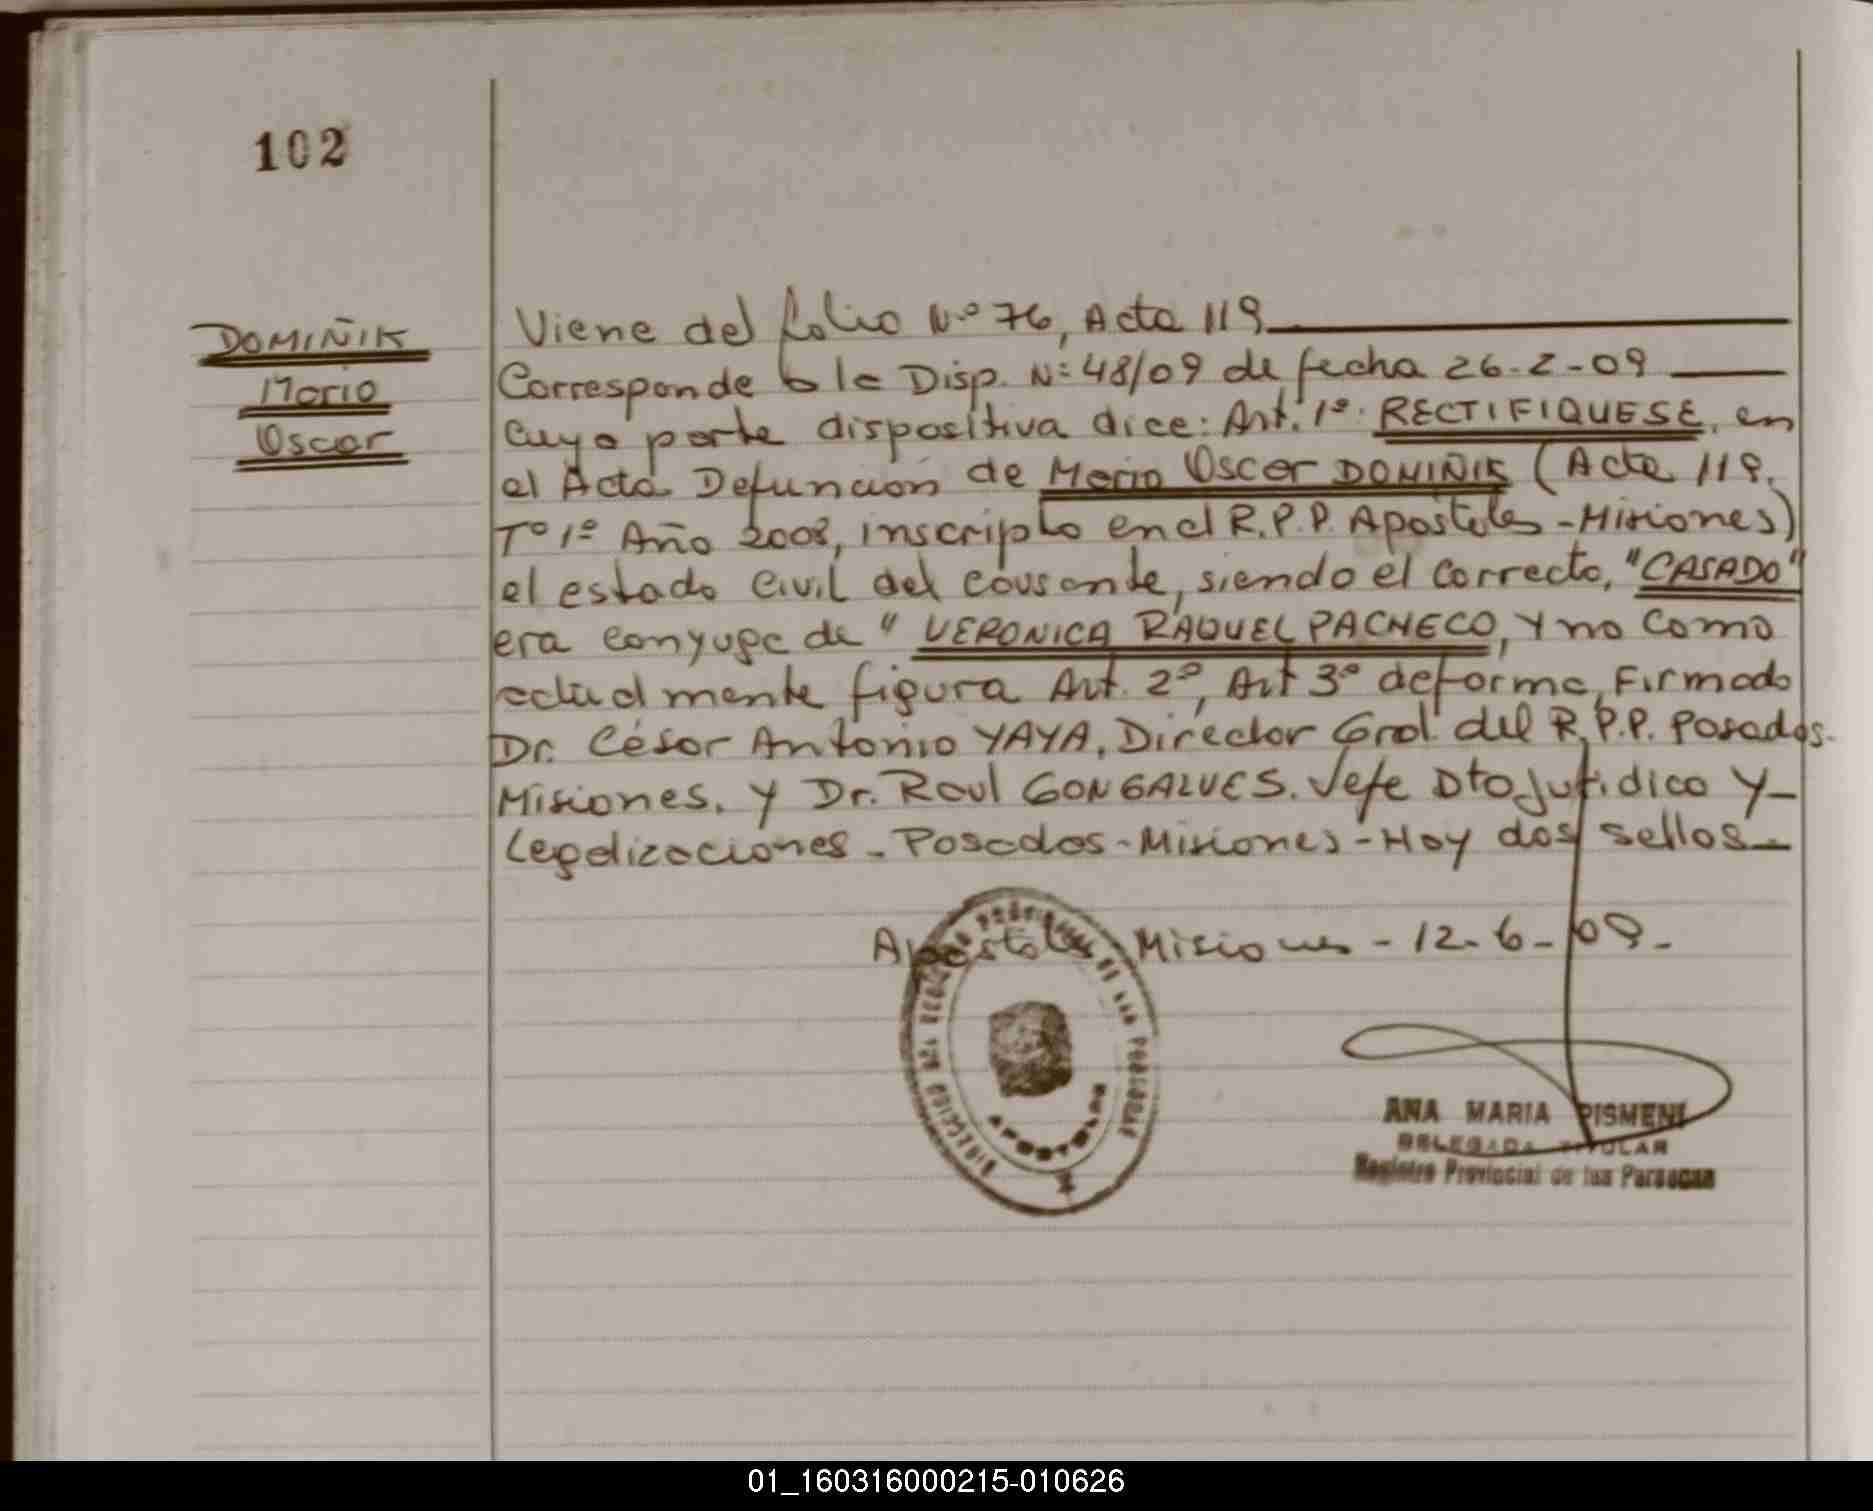 102
DOMIÑIK
Mario
Oscar
Viene del folio Nº 76, Acta 119
Corresponde a la Disp. Nº 48/09 de fecha 26-2-09
cuya parte dispositiva dice: Art. 1º: RECTIFIQUESE, en
el Acta Defunción de Mario Oscar DOMIÑIK (Acta 119,
Tº 1º Año 2008, inscripto en el R.P.P. Apostoles - Misiones)
el estado Civil del causante, siendo el correcto, "CASADO"
era conyuge de "VERONICA RAQUEL PACHECO, y no como
actualmente figura Art. 2º, Art 3º de forma, Firmado
Dr. César Antonio YAYA, Director Gral. del R.P.P. Posadas-
Misiones. y Dr. Raul GONGALVES. Jefe Dto Jurídico y-
Legalizaciones - Posadas - Misiones - Hay dos sellos-
Apostoles Misiones - 12-6-09-
DIRECCION DEL REGISTRO PROVINCIAL DE LAS PERSONAS
APOSTOLES
ANA MARIA PISMENI
DELEGADA TITULAR
Registro Provincial de las Personas
01_160316000215-010626